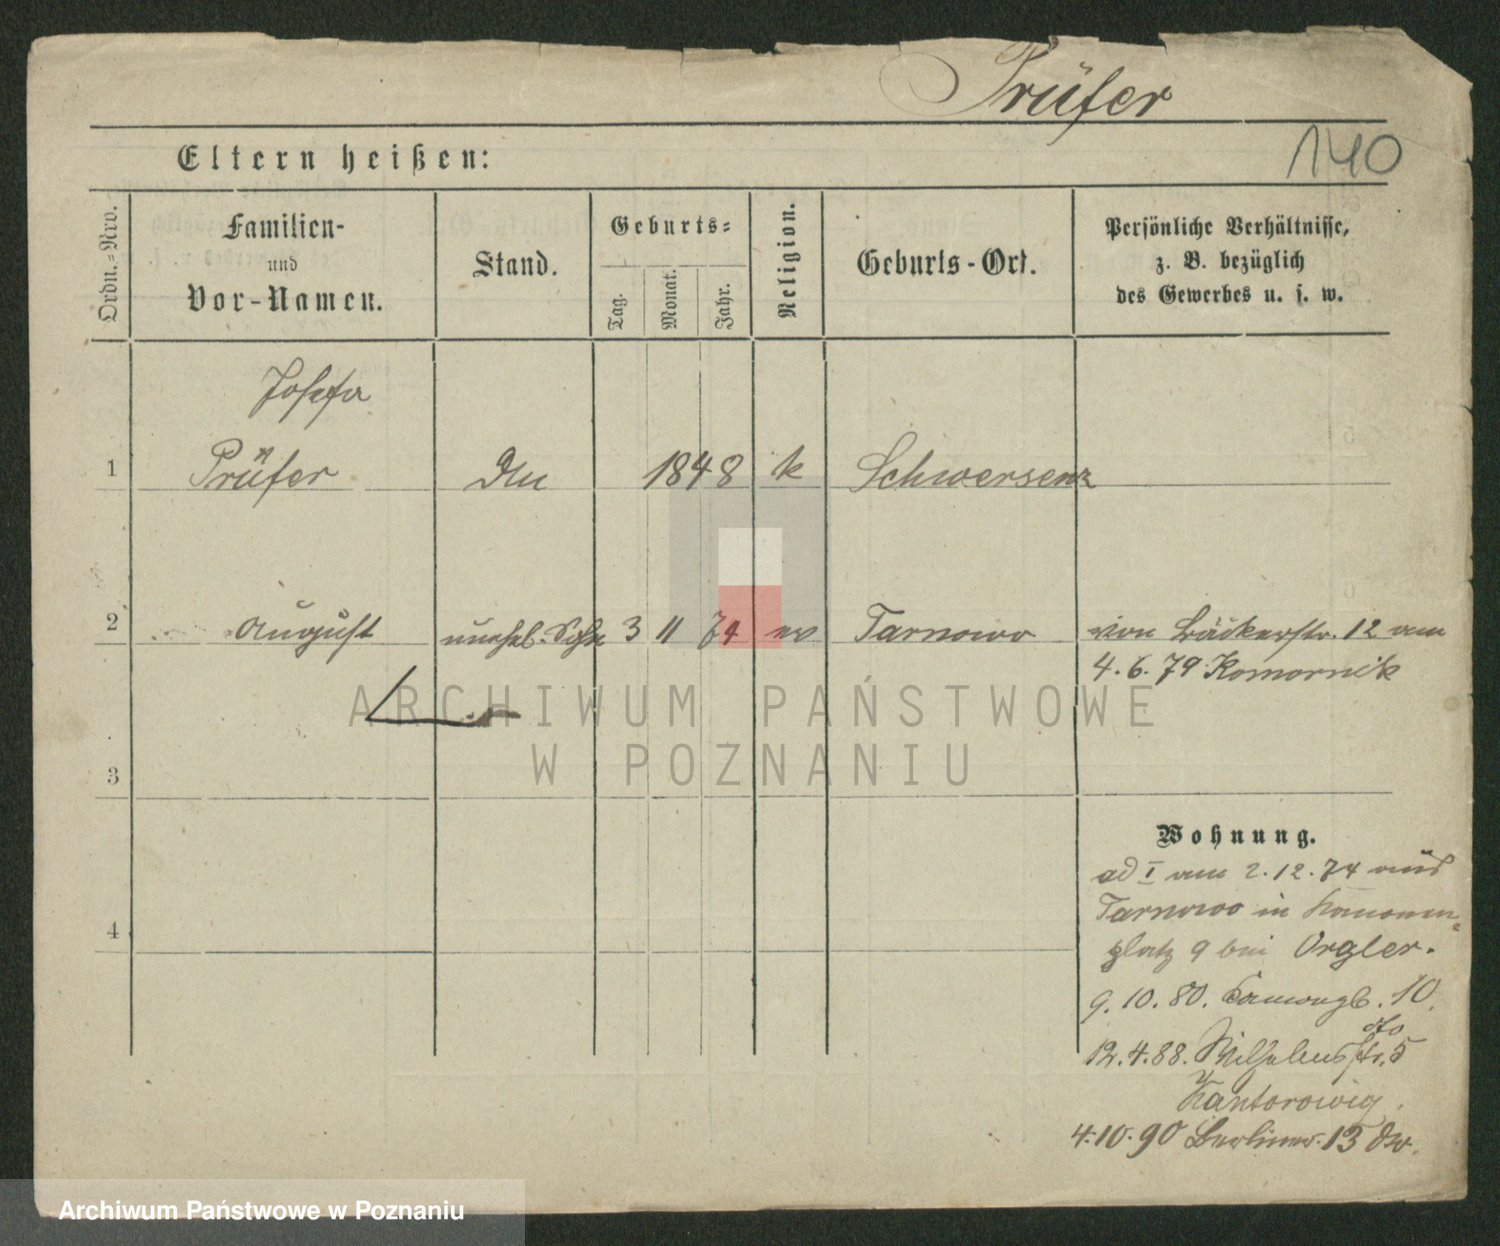 Prüfer
140
Eltern heißen:
Ordn.-Nro.
Familien-
und
Vor-Namen.
Stand.
Geburts-
Tag.
Monat.
Jahr.
Religion.
Geburts-Ort.
Persönliche Verhältnisse,
z. B. bezüglich
des Gewerbes u. s. w.
Josefa
1 Prüfer 1848 k Schwersenz
2 August unehel. Sohn 3 11 74 ev Tarnowo von Bäckerstr. 12 am
4. 6. 79 Komornik
ARCHIWUM PAŃSTWOWE
W POZNANIU
3
Wohnung.
ad I am 2. 12. 74 aus
Tarnowo in Kanonen-
4
platz 9 bei Orgler.
9. 10. 80. 10.
dto
12. 4. 88. Wilhelmsstr. 5
Kantorowicz.
4. 10. 90 Berliner. 13
Archiwum Państwowe w Poznaniu